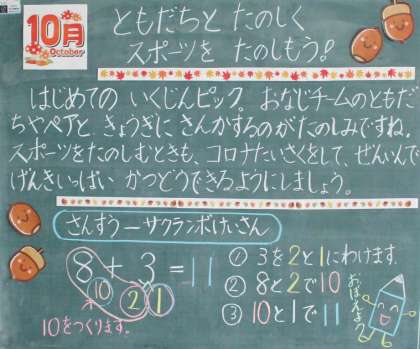 10月
October
ともだちと たのしく
スポーツを たのしもう!
はじめての いくじんピック。おなじチームのともだ
ちやペアと、きょうぎに さんかするのが たのしみですね。
スポーツをたのしむときも、コロナたいさくをして、ぜんいんで
げんきいっぱい かつどうできるようにしましょう。
さんすう―サクランボけいさん
8+3=11
10 2 1
10をつくります。
① 3を2と1にわけます。
② 8と2で10
③ 10と1で11